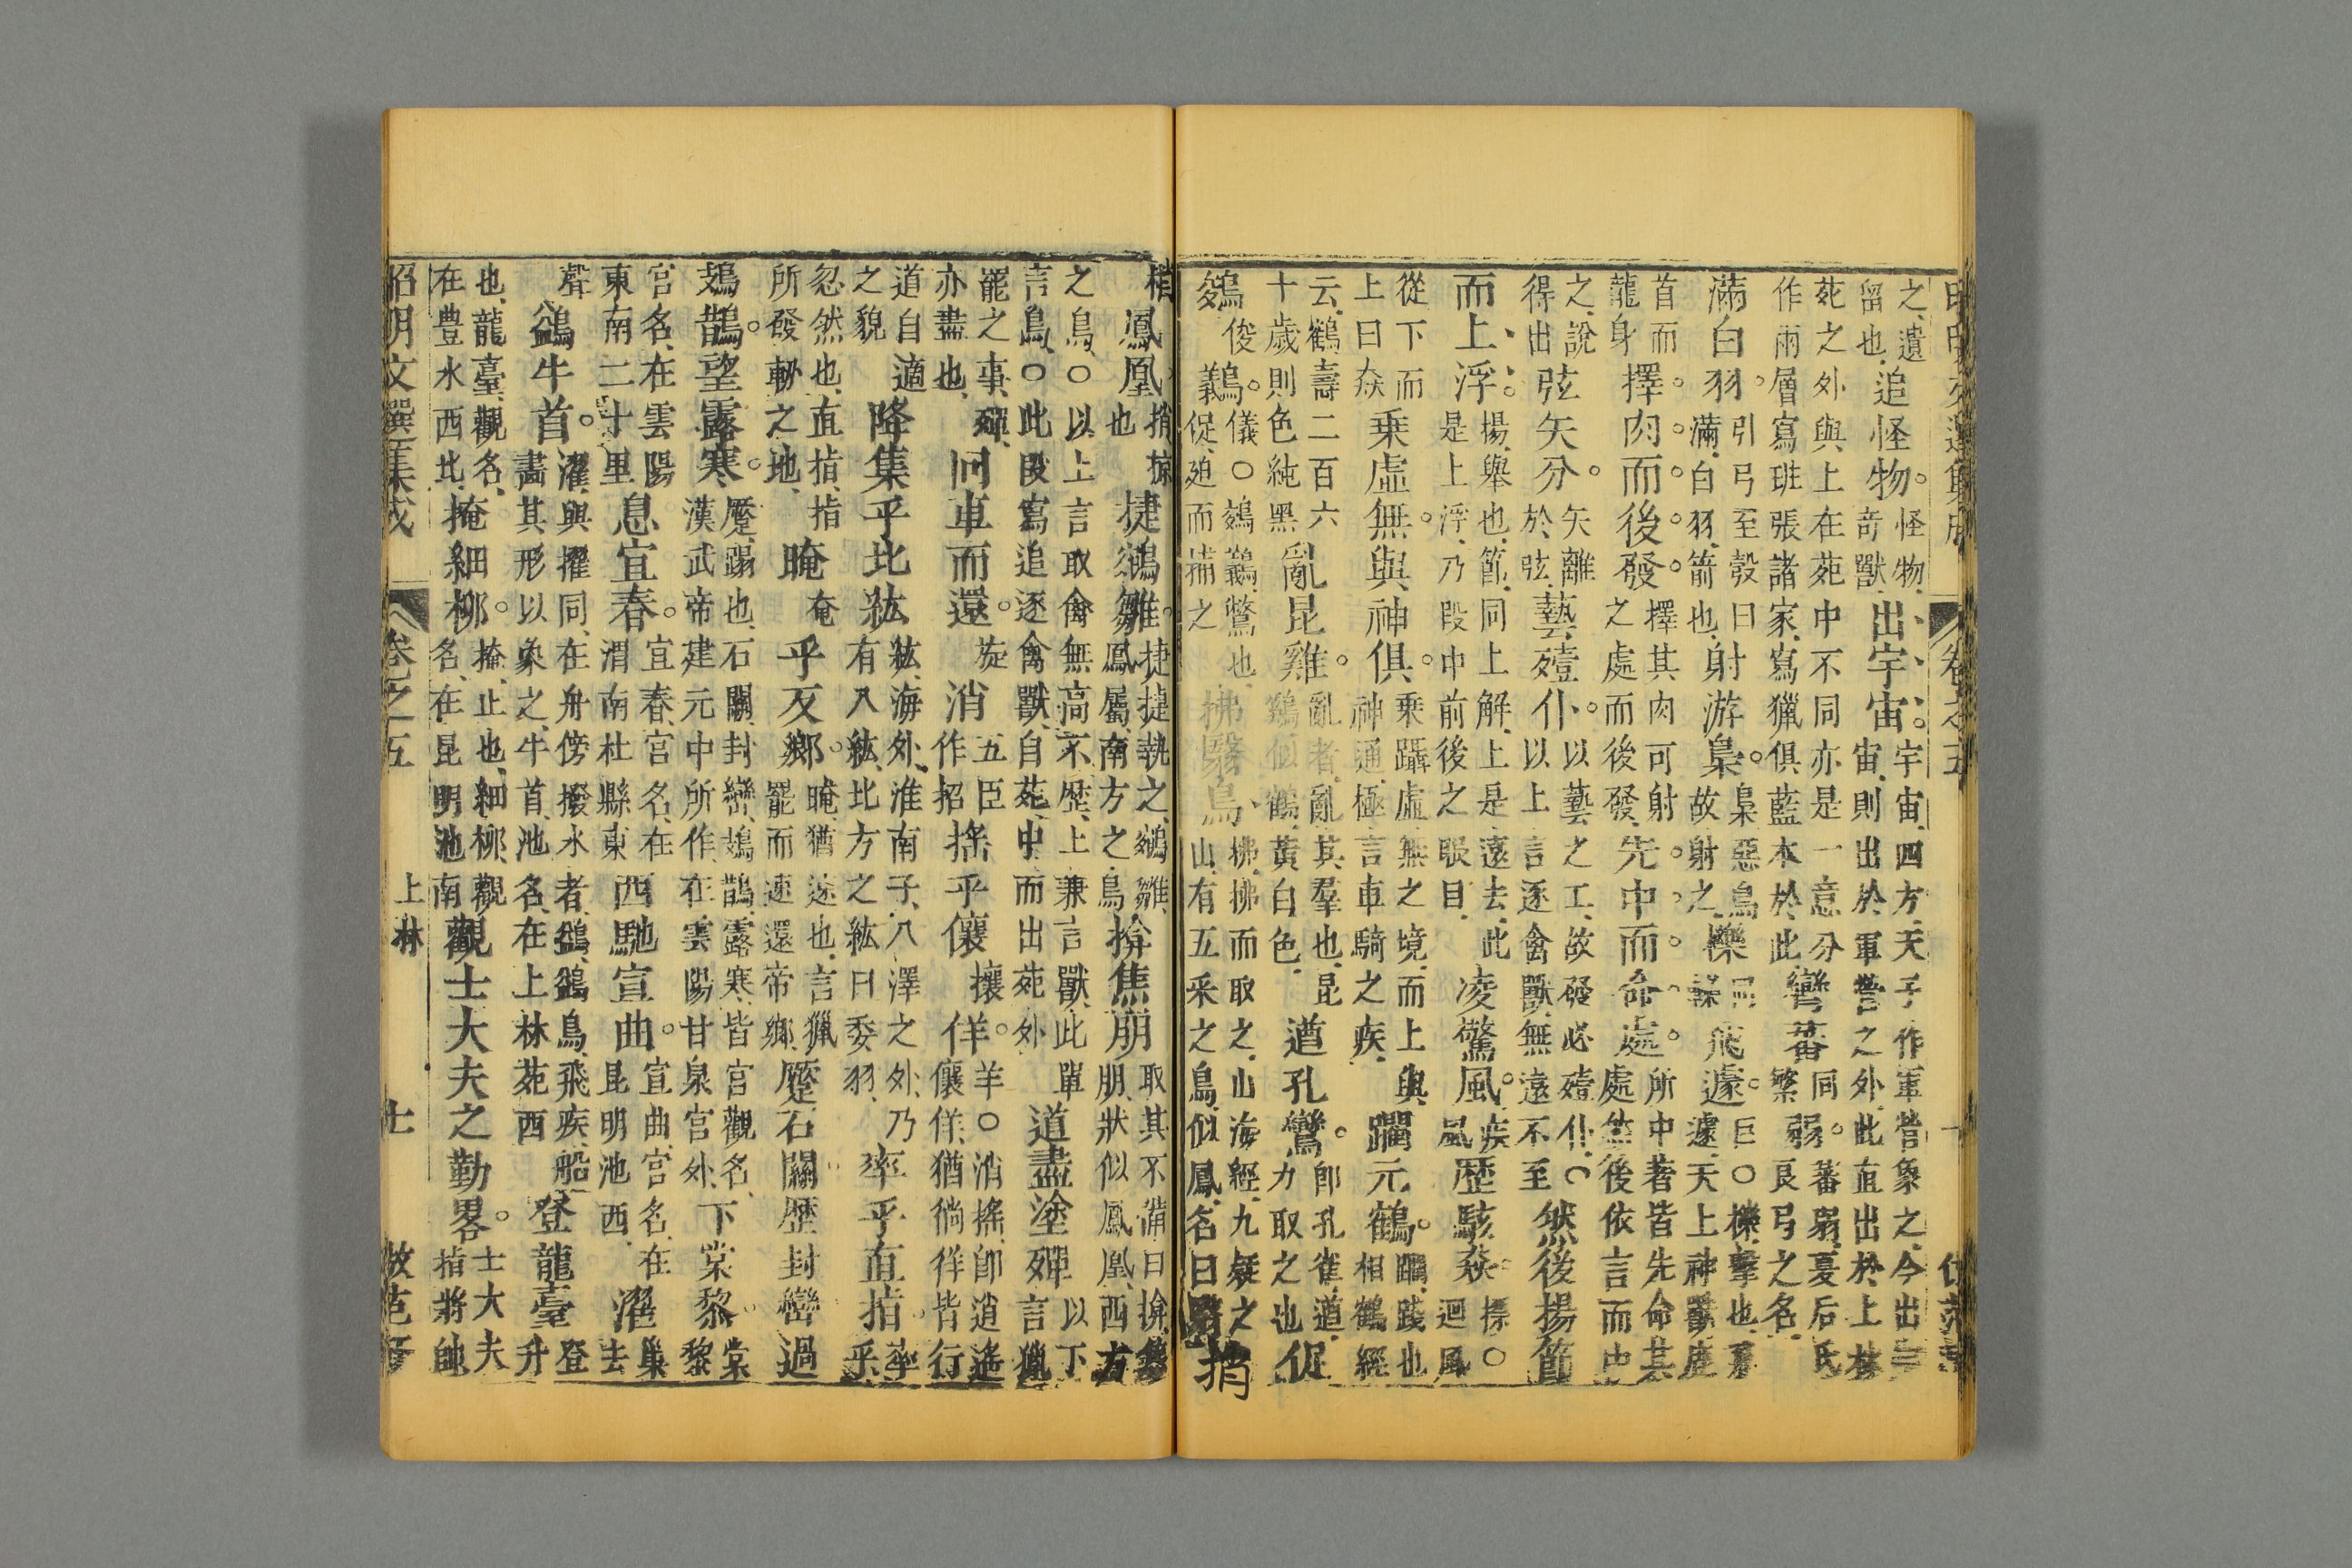 之、遺留也、追怪物。怪物、奇獸、出宇宙。宇宙、四方、天子作軍營象之、今出宇宙、則出於軍營之外、此直出於上林
苑之外、與上在苑中不同、亦是一意分作兩層寫、班張諸家、寫獵俱藍本於此、彎蕃同繁弱。蕃弱、夏后氏良弓之名、
滿白羽。引弓至彀曰滿、白羽、箭也、射游梟。梟惡鳥故射之、櫟飛遽。巨〇櫟、擊也、遽、天上神獸鹿
首而龍身擇肉而後發。擇其肉可射之處而後發、先中而命處。所中著皆先命其處然後依言而中
之、說得出弦矢分。矢離於弦、藝殪仆。以藝之工、故發必殪仆、〇以上言逐禽獸、無遠不至然後揚節
而上浮。揚、舉也、節、同上解、上是遠去、此是上浮、乃段中前後之眼目、凌驚風。疾風歷駭猋。〇迴風
從下而上曰猋乘虛無。與神俱。乘躡虛無之境、而上與神通、極言車騎之疾、躪元鶴。躪、踐也相鶴經
云、鶴壽二百六十歲則色純黑亂昆雞。亂者、亂其羣也、昆鷄似鶴、黃白色、遒孔鸞。卽孔雀、遒、力取之也促
鵔俊鸃。儀〇鵔鸃、鷩也、促、廹而捕之拂翳鳥、拂、拂而取之、山海經、九嶷之山、有五采之鳥、似鳳、名曰翳捎
鳳凰。捎、掠也捷鵷雛。捷、捷執之、鵷雛、鳳屬、南方之鳥、揜焦朋取其不備曰揜、朋狀似鳳凰、西方
之鳥、〇以上言取禽無高不歷、上兼言獸、此單言鳥、〇此段寫追逐禽獸、自苑中而出苑外道盡塗殫以下言獵
罷之事、殫、亦盡也、回車而還。旋消五臣作招搖乎儴攘佯。羊〇消搖、卽逍遙儴佯、猶徜徉皆行
道自適之貌降集乎北紘紘、海外、淮南子、八澤之外、乃有八紘、北方之紘曰委羽、率乎直指。率乎、
忽然也、直指、指所發軔之地、晻奄乎反鄉。晻、猶遂也、言獵罷而速還帝鄉、蹷石關歷封巒過
鳷鵲。望露寒。蹷、蹋也、石關、封巒、鳷鵲、露寒、皆宮觀名、漢武帝建元中所作、在雲陽甘泉宮外、下棠黎。棠黎
宮名、在雲陽東南三十里息宜春。宜春、宮名、在渭南杜縣東西馳宣曲。宣曲、宮名、在昆明池西、濯去聲
鷁牛首。濯與擢同、在舟傍撥水者、鷁、鷁鳥、飛疾、船畵其形以象之、牛首、池名、在上林苑西登龍臺登升
也、龍臺、觀名、在豊水西北、掩細柳。掩、止也、細柳、觀名、在昆明池南觀士大夫之勤畧。士大夫指將帥
昭明文選集成 卷之五 上林